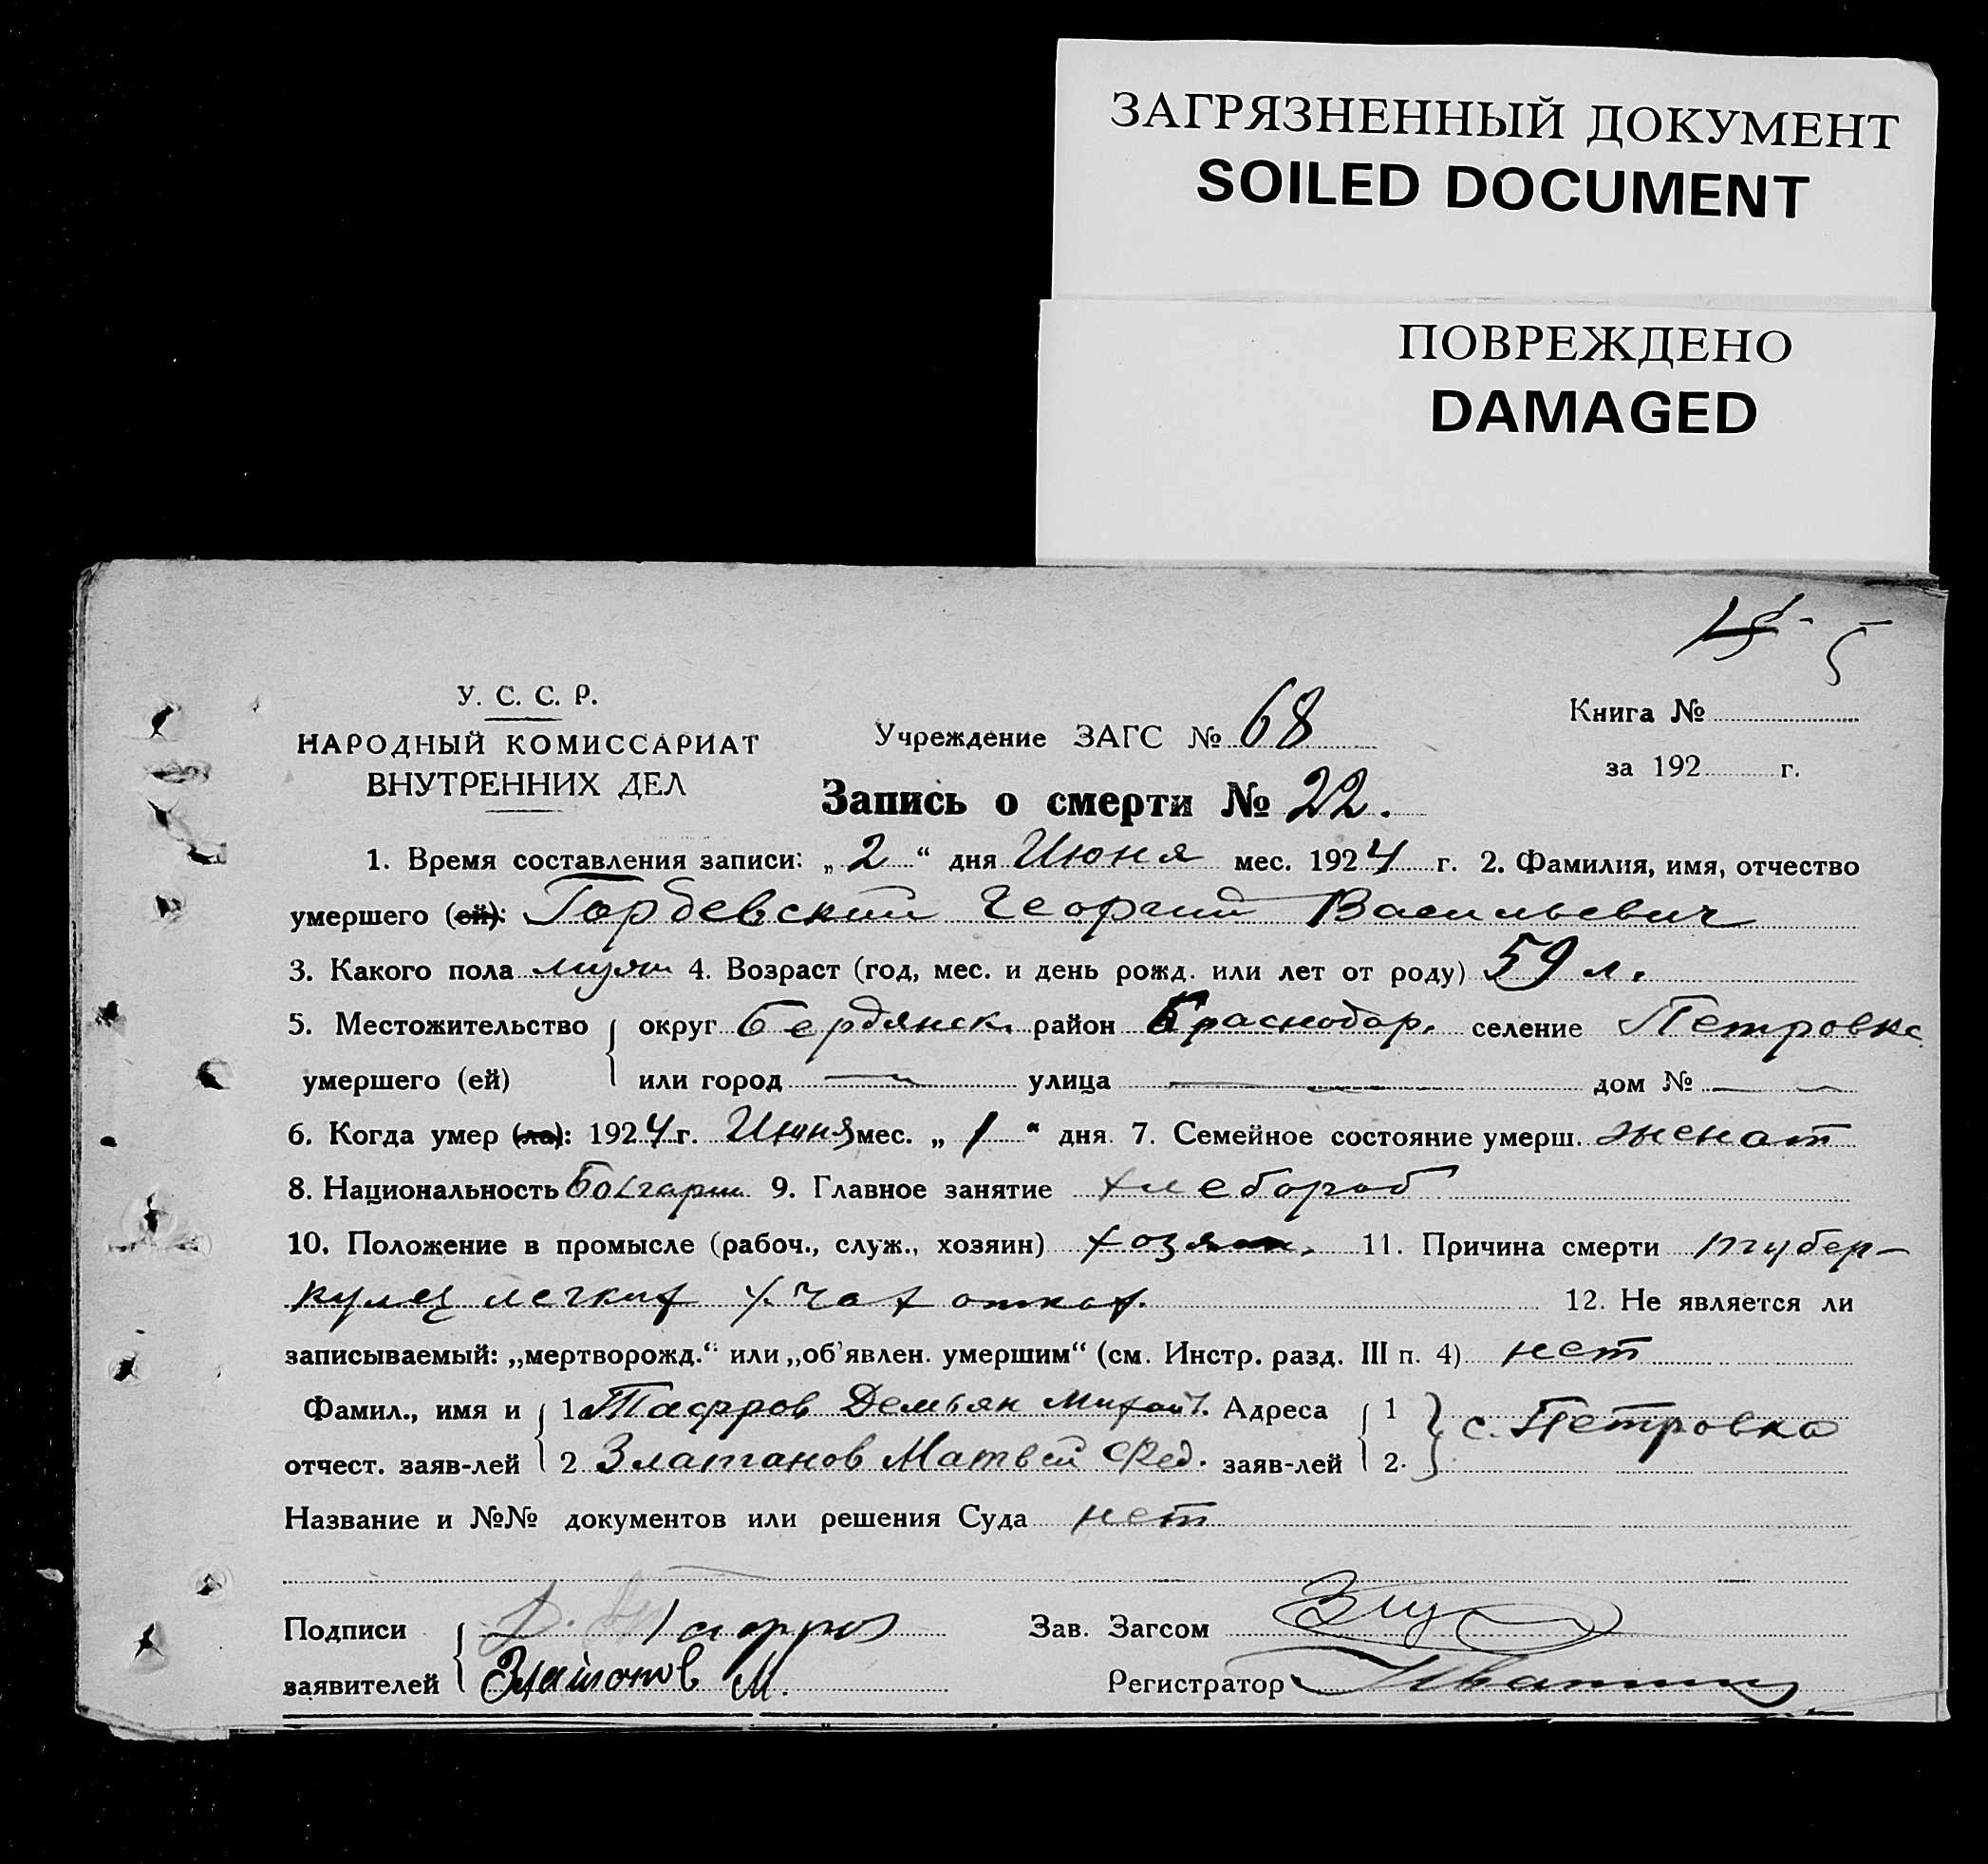 ЗАГРЯЗНЕННЫЙ ДОКУМЕНТ
SOILED DOCUMENT
ПОВРЕЖДЕНО
DAMAGED
5
У. С. С. Р.
НАРОДНЫЙ КОМИССАРИАТ
ВНУТРЕННИХ ДЕЛ
Учреждение ЗАГС № 68
Книга №
за 192 г.
Запись о смерти № 22.
1. Время составления записи: „2“ дня Июня мес. 1924 г. 2. Фамилия, имя, отчество
умершего (ей): Гарбевский Георгий Васильевич
3. Какого пола муж 4. Возраст (год, мес. и день рожд. или лет от роду) 59 л.
5. Местожительство округ Бердянск. район Краснодар. селение Петровка
умершего (ей) или город — улица — дом № —
6. Когда умер (ла): 1924 г. Июня мес. „1“ дня. 7. Семейное состояние умерш. женат
8. Национальность Болгарин 9. Главное занятие хлебороб
10. Положение в промысле (рабоч., служ., хозяин) хозяин. 11. Причина смерти тубер-
кулез легких 12. Не является ли
записываемый: „мертворожд.“ или „об'явлен. умершим“ (см. Инстр. разд. III п. 4) нет
Фамил., имя и 1 Тафров Демьян Михайл. Адреса 1 с. Петровка
отчест. заяв-лей 2 Златанов Матвей Фед. заяв-лей 2.
Название и №№ документов или решения Суда нет
Подписи Д. Тафров Зав. Загсом
заявителей Златанов М. Регистратор